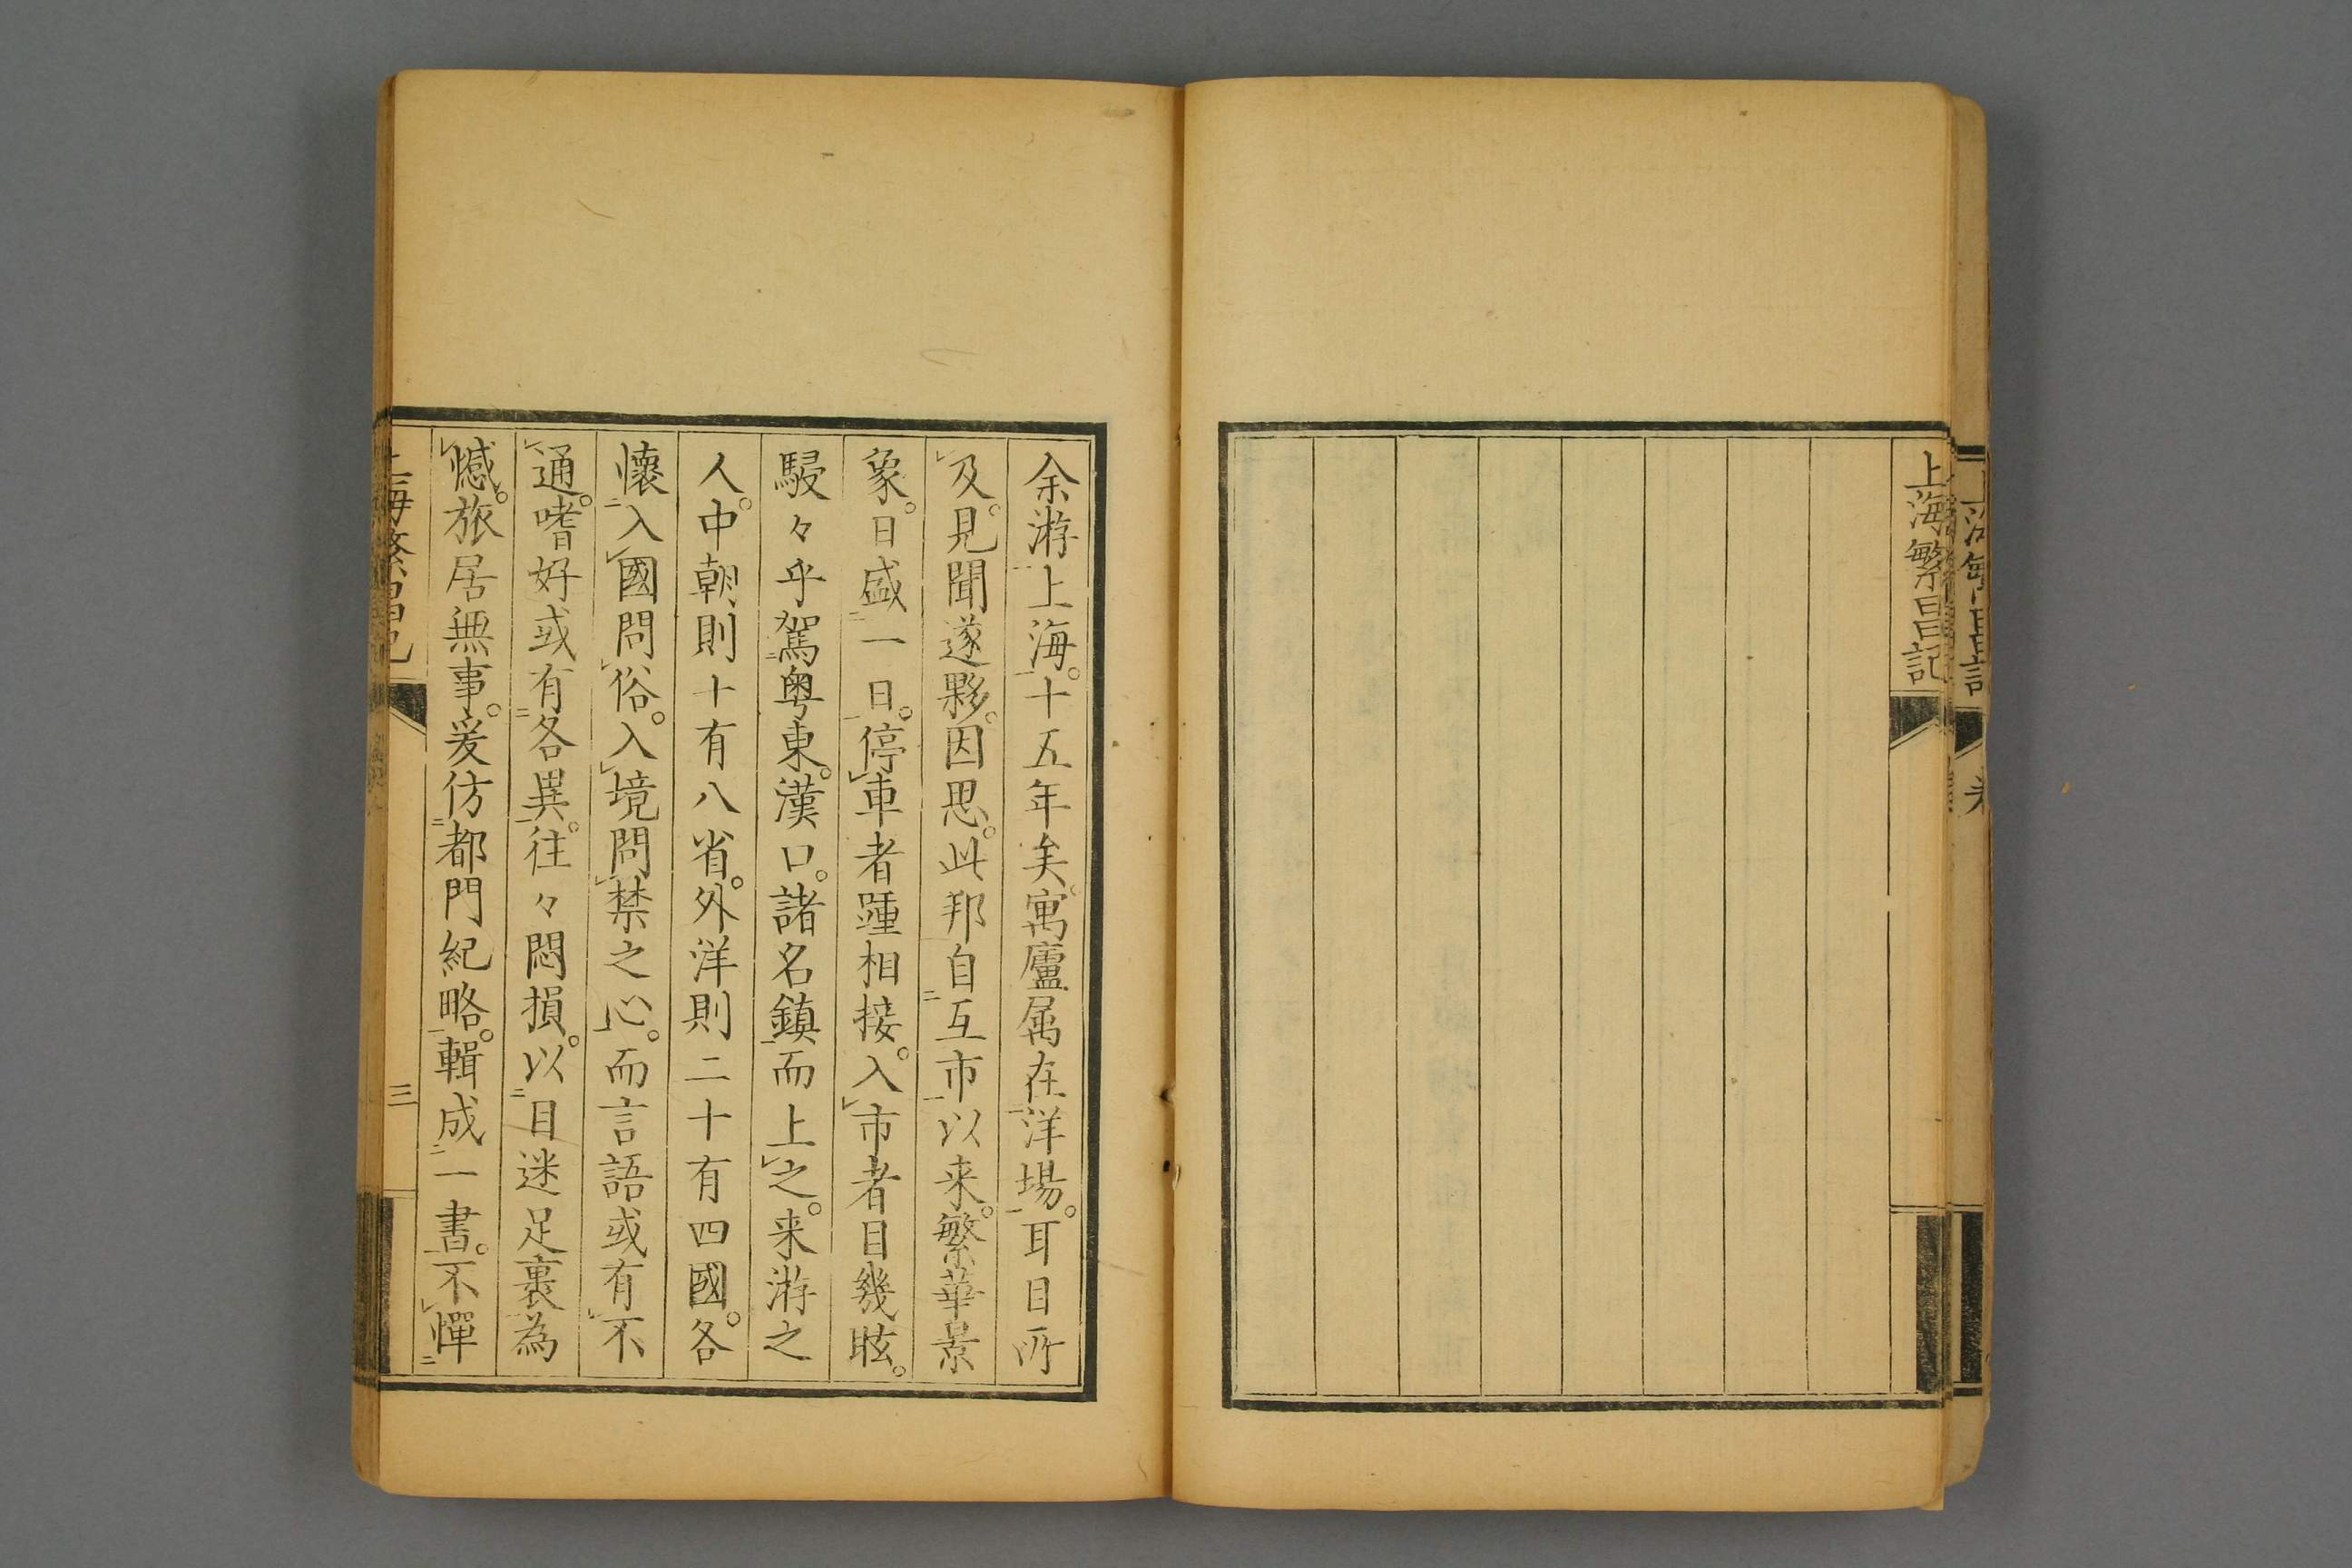 上海繁昌記
余游上海。十五年矣。寓廬属在洋場。耳目所
及。見聞遂夥。因思。此邦自互市以来。繁華景
象。日盛一日。停車者踵相接。入市者目幾眩。
駸々乎駕粵東。漢口。諸名鎮而上之。来游之
人。中朝則十有八省。外洋則二十有四國。各
懷入國問俗。入境問禁之心。而言語或有不
通。嗜好或有各異。往々悶損。以目迷足裹為
憾。旅居無事。爰仿都門紀略。輯成一書。不憚
上海繁昌記
三